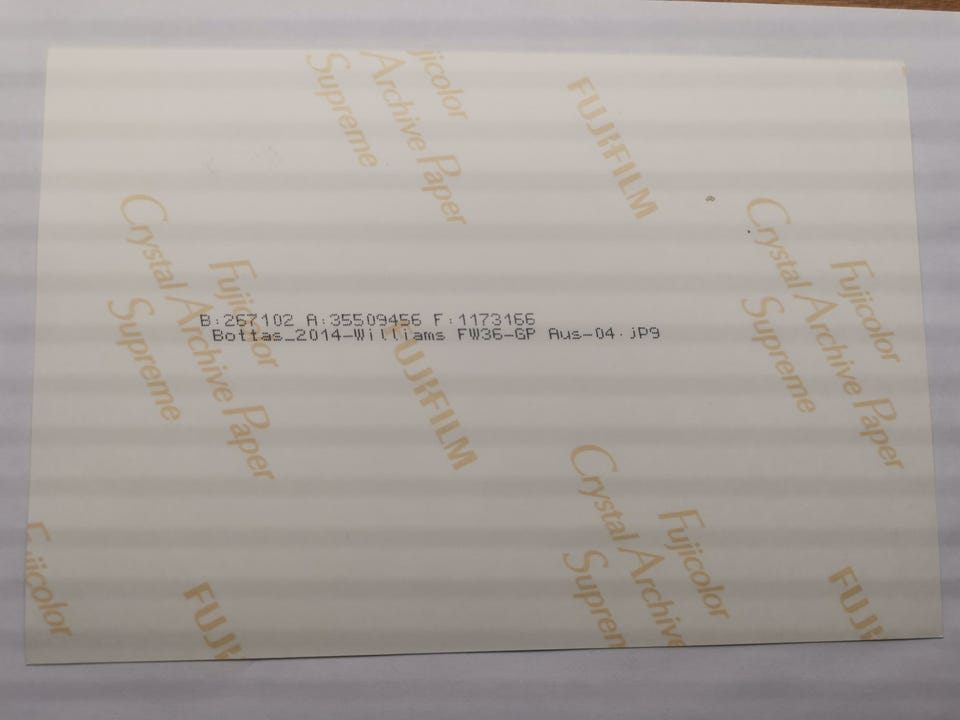 Fujicolor
Crystal Archive Paper
Supreme
FUJIFILM
Archive Paper
Supreme
Fujicolor
Crystal Archive Paper
Supreme
B:267102 A:35509456 F:1173166
Bottas_2014-Williams FW36-GP Aus-04.jpg
FUJIFILM
Fujicolor
Crystal Archive
FUJIFILM